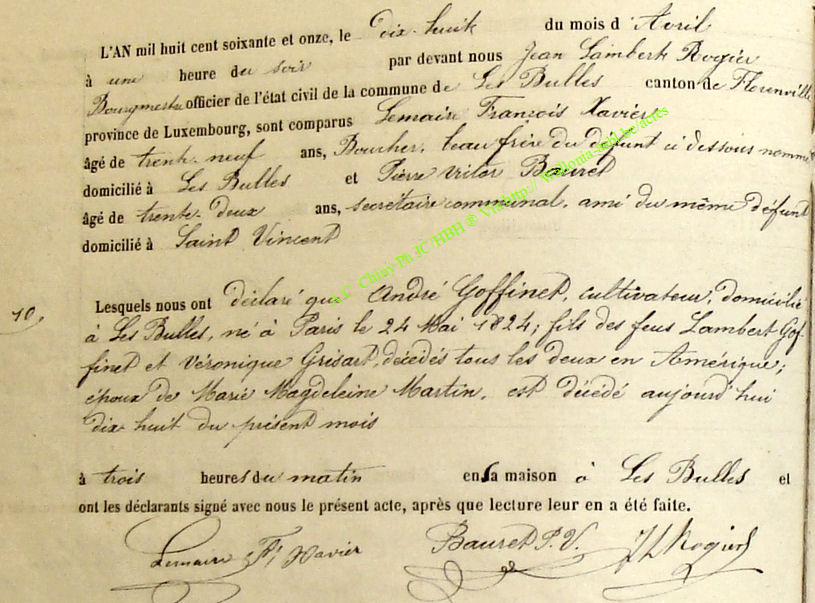 L'AN mil huit cent soixante et onze, le dix-huit du mois d'Avril
à une heure du soir par devant nous Jean Lambert Rogier
Bourgmestre officier de l'état civil de la commune de Les Bulles canton de Florenville
province de Luxembourg, sont comparus Lemaire François Xavier
âgé de trente-neuf ans, Boucher, beau frère du défunt ci dessous nommé
domicilié à Les Bulles et Pierre Victor Bauret
âgé de trente-deux ans, secrétaire communal, ami du même défunt
domicilié à Saint Vincent
10. Lesquels nous ont déclaré que André Goffinet, cultivateur, domicilié
à Les Bulles, né à Paris le 24 Mai 1824; fils des feus Lambert Gof-
finet et Véronique Grisart, décédés tous les deux en Amérique;
époux de Marie Magdeleine Martin, est décédé aujourd'hui
dix-huit du présent mois
à trois heures du matin en sa maison à Les Bulles et
ont les déclarants signé avec nous le présent acte, après que lecture leur en a été faite.
Lemaire F. Xavier Bauret P. V. JL Rogier